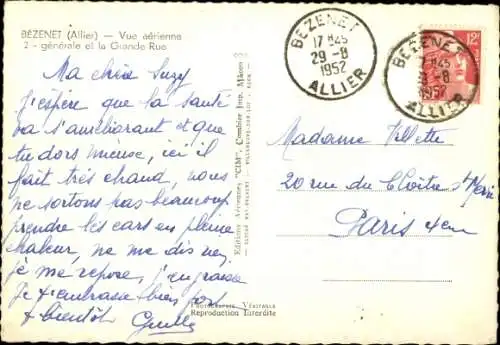 BÉZENET (Allier) — Vue aérienne
2 - générale et la Grande Rue
Ma chère Suzy
J'espère que la santé
va s'améliorant et que
tu dors mieuse, ici il
fait très chaud, nous
ne sortons pas beaucoup
prendre les cars en pleine
chaleur, ne me dis rien
je me repose, j'engraisse
Je t'embrasse bien fort
à bientôt
Editions Aériennes "CIM", Combier Imp. Mâcon
PHOTOGRAPHIE VÉRITABLE
Reproduction Interdite
BEZENET
17 H45
29-8
1952
ALLIER
BEZENET
H45
-8
1952
ALLIER
12F
Madame Villette
20 rue du Cloître St Merri
Paris 4em